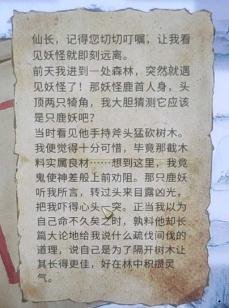 仙长，记得您切切叮嘱，让我看
见妖怪就即刻远离。
前天我进到一处森林，突然就遇
见妖怪了！那妖怪鹿首人身，头
顶两只犄角，我大胆猜测它应该
是只鹿妖吧？
当时看见他手持斧头猛砍树木。
我便觉得十分可惜，毕竟那截木
料实属良材……想到这里，我竟
鬼使神差般上前劝阻。那只鹿妖
听我所言，转过头来目露凶光，
把我吓得心头一突。正当我以为
自己命不久矣之时，孰料他却长
篇大论地给我说什么疏伐间伐的
道理，说自己是为了隔开树木让
其长得更佳，好在林中积攒灵
气。